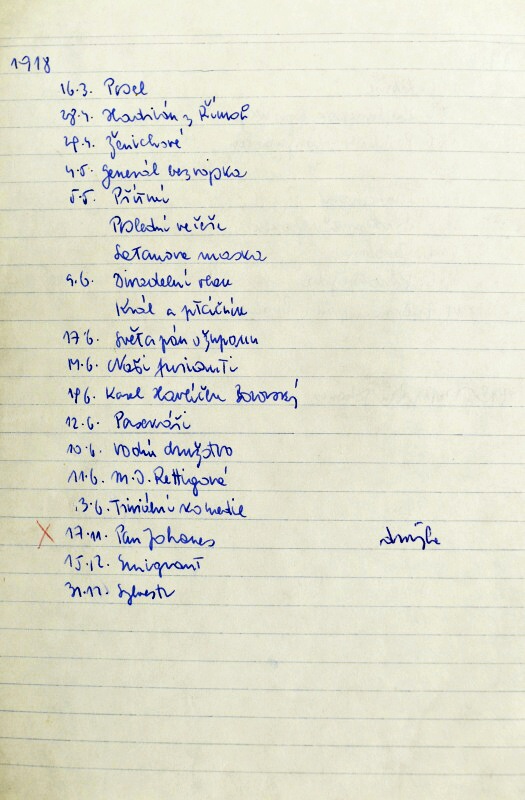 1918
16.3. Posel
28.4. Hadrián z Římsů
29.4. Ženichové
4.5. Generál bez vojska
5.5. Příštní
Poslední večeře
Satanova maska
9.6. Divadelní
Král a ptáčník
17.6. Světa pán v županu
14.6. Naši furianti
19.6. Karel Havlíček Borovský
12.6. Pasekáři
10.6. Vodní družstvo
11.6. M.D. Rettigová
.3.6. Triviální komedie
X 17.11. Pan Johanes
15.12. Emigrant
31.12. Sylvestr